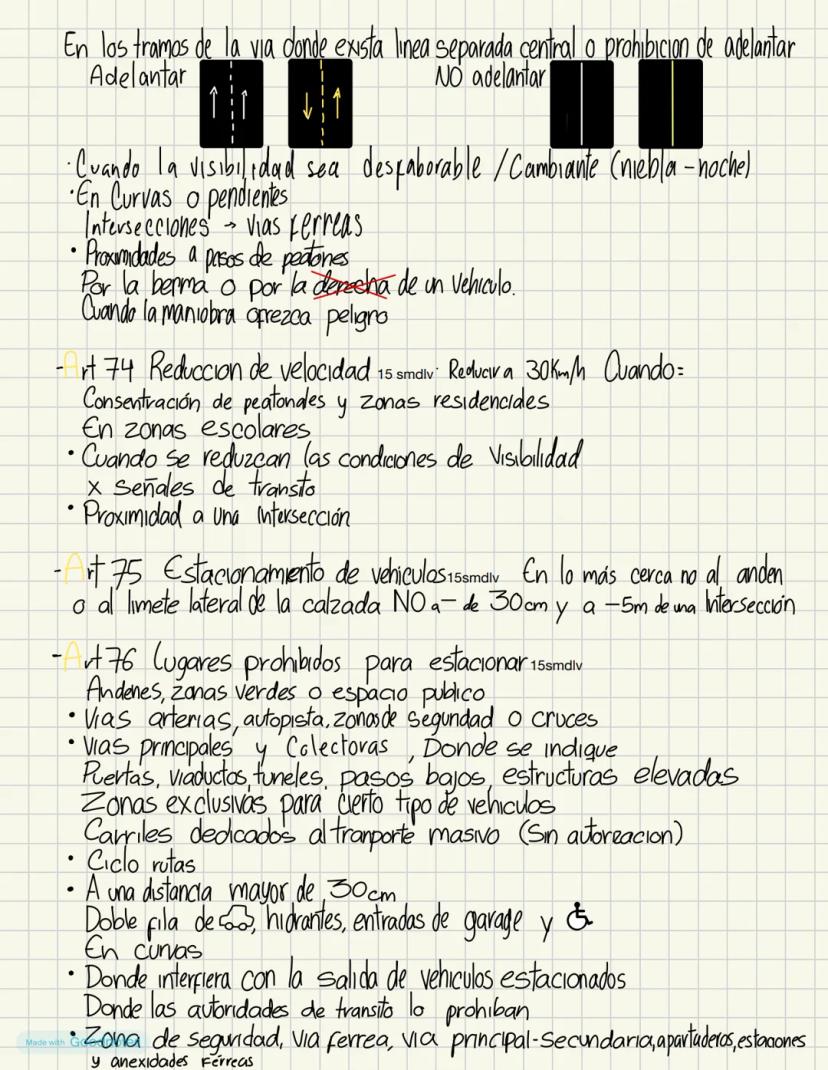 En los tramos de la via donde exista linea separada central o prohibicion de adelantar
Adelantar NO adelantar
· Cuando la visibilidad sea desfaborable / Cambiante (niebla - noche)
· En Curvas o pendientes
Intersecciones → vias ferreas
· Proximidades a pasos de peatones
Por la berma o por la derecha de un vehiculo.
Cuando la maniobra ofrezca peligro
- Art 74 Reduccion de velocidad 15 smdlv · Reducir a 30Km/h Cuando:
Consentración de peatonales y zonas residenciales
En zonas escolares
· Cuando se reduzcan las condiciones de Visibilidad
x señales de transito
· Proximidad a una intersección
- Art 75 Estacionamiento de vehiculos 15smdlv En lo más cerca no al anden
o al limete lateral de la calzada NO a - de 30cm y a -5m de una Intersección
- Art 76 Lugares prohibidos para estacionar 15smdlv
Andenes, zonas verdes o espacio publico
· Vias arterias, autopista, zonas de seguridad o cruces
· Vias principales y Colectoras, Donde se indique
Puertas, viaductos, tuneles, pasos bajos, estructuras elevadas
Zonas exclusivas para cierto tipo de vehiculos
Carriles dedicados al tranporte masivo (Sin autoreacion)
· Ciclo rutas
· A una distancia mayor de 30cm
Doble fila de , hidrantes, entradas de garage y
En curvas
· Donde interfiera con la salida de vehiculos estacionados
Donde las autoridades de transito lo prohiban
· Zona de seguridad, via ferrea, via principal-Secundaria, apartaderos, estaciones
y anexidades Férreas
Made with Goodnotes